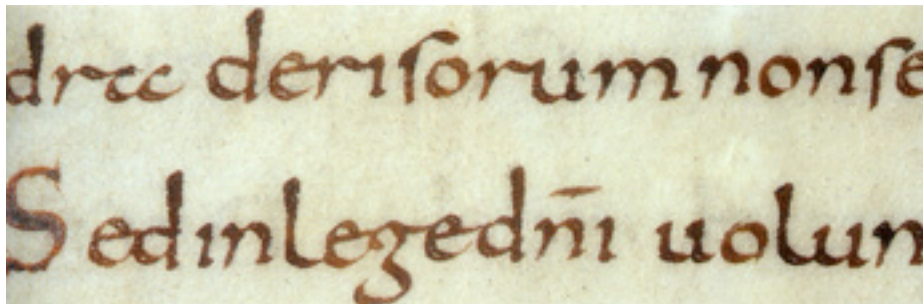 dra derisorum nonse
Sed inlegedn̄i uolun